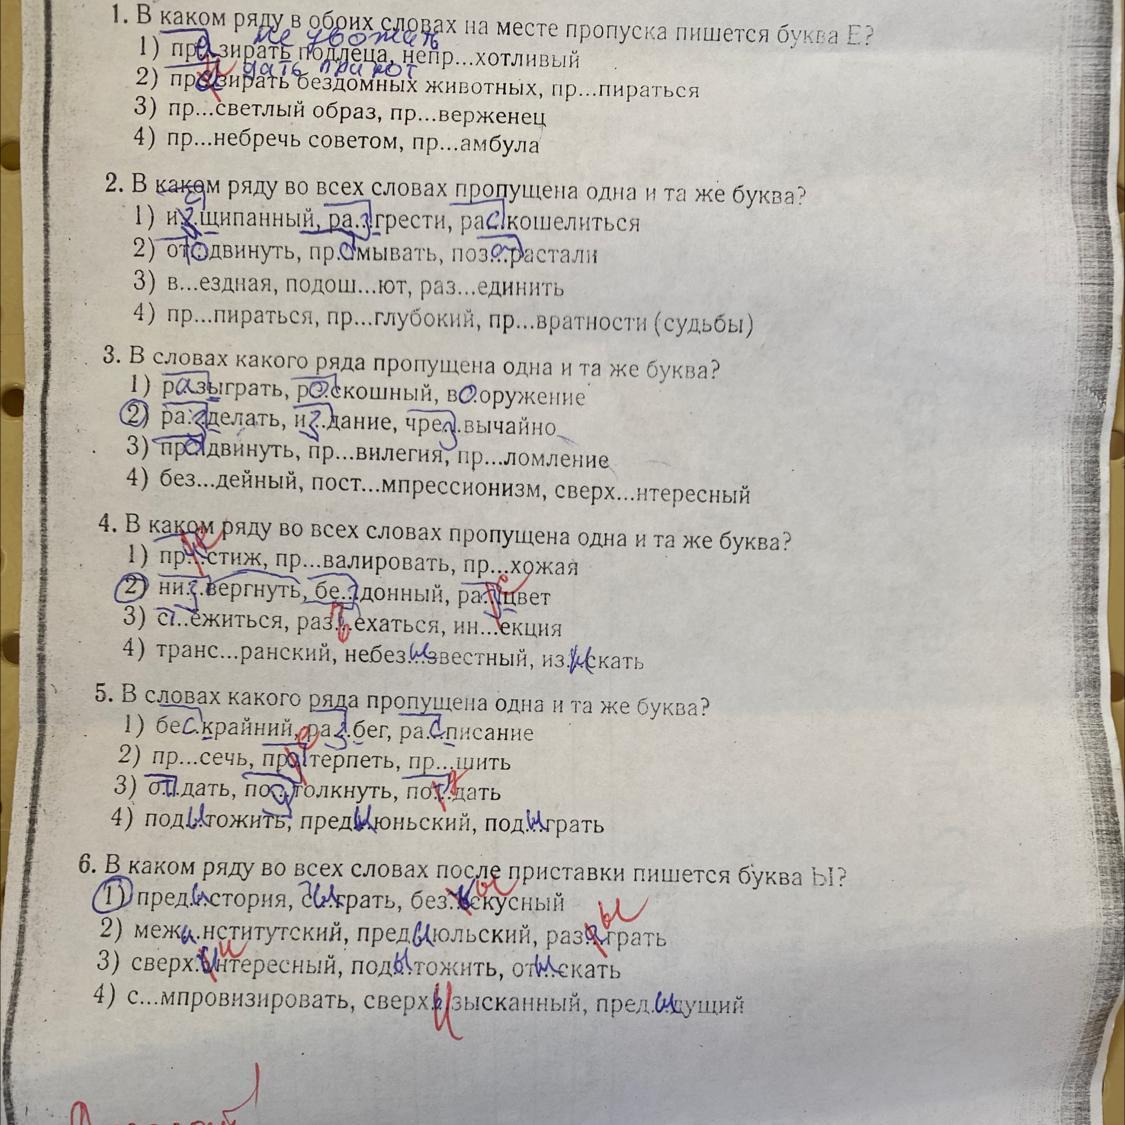 1. В каком ряду в обоих словах на месте пропуска пишется буква Е?
не уважать
1) презирать подлеца, непр...хотливый
дать приют
2) пр...зирать бездомных животных, пр...пираться
3) пр...светлый образ, пр...верженец
4) пр...небречь советом, пр...амбула
2. В каком ряду во всех словах пропущена одна и та же буква?
1) и...щипанный, раз.грести, рас.кошелиться
2) отодвинуть, пр.омывать, поз...растали
3) в...ездная, подош...ют, раз...единить
4) пр...пираться, пр...глубокий, пр...вратности (судьбы)
3. В словах какого ряда пропущена одна и та же буква?
1) разыграть, роскошный, вооружение
2) раз.делать, из.дание, чрез.вычайно
3) продвинуть, пр...вилегия, пр...ломление
4) без...дейный, пост...мпрессионизм, сверх...нтересный
4. В каком ряду во всех словах пропущена одна и та же буква?
1) пр...стиж, пр...валировать, пр...хожая
2) низ.вергнуть, без.донный, ра...цвет
3) с...ежиться, раз...ехаться, ин...екция
4) транс...ранский, небезызвестный, из.ыскать
5. В словах какого ряда пропущена одна и та же буква?
1) бес.крайний, раз.бег, рас.писание
2) пр...сечь, пр...терпеть, пр...шить
3) от.дать, под.толкнуть, по...дать
4) подытожить, предыюньский, подыграть
6. В каком ряду во всех словах после приставки пишется буква Ы?
1) предыстория, сыграть, безыскусный
2) межи.нститутский, предыюльский, разыграть
3) сверх.интересный, подытожить, отыскать
4) с...мпровизировать, сверхизысканный, пред.ыдущий